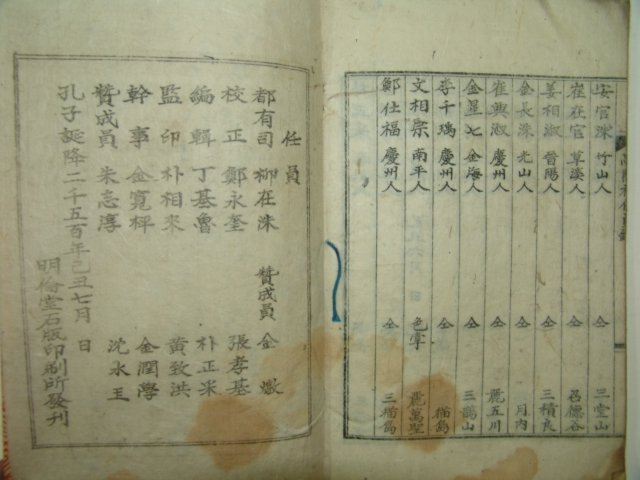 安官洙 竹山人 仝 三堂山
崔在官 草溪人 仝 呂德谷
姜相淑 晉陽人 仝 三積良
金長洙 光山人 仝 月內
崔興淑 慶州人 仝 麗五川
金星七 金海人 仝 三鶴山
李千瑀 慶州人 仝 猫島
文相宗 南平人 色掌 麗萬聖
鄭仕福 慶州人 仝 三猫島
任員
都有司 柳在洙 贊成員 金
校正 鄭永奎 張孝基
編輯 丁基魯 朴正采
監印 朴相來 黃致洪
幹事 金寬枰 金潤學
贊成員 朱志淳 沈水王
孔子誕降二千五百年己丑七月 日
明倫堂石版印刷所發刊